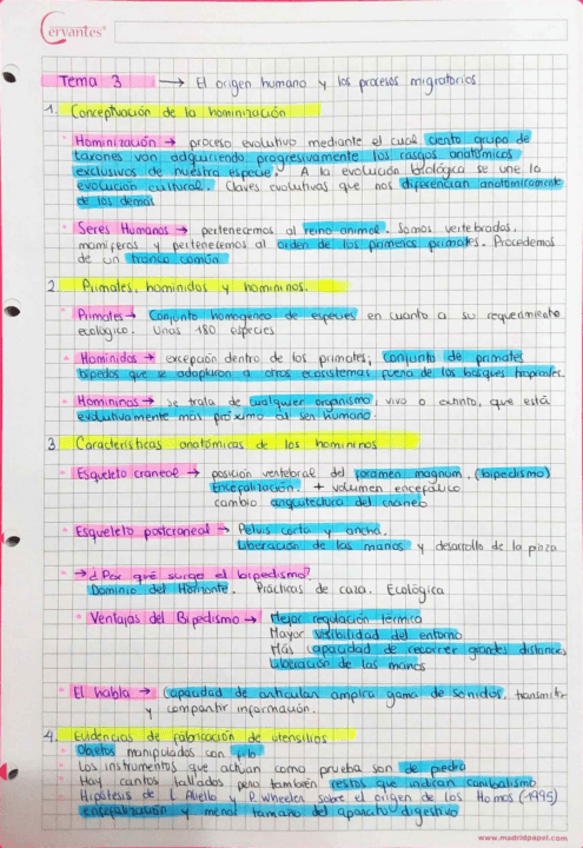 Cervantes
Tema 3 → El origen humano y los procesos migratorios
1. Conceptuación de la hominización
Hominización → proceso evolutivo mediante el cual ciento grupo de
taxones van adquiriendo progresivamente los rasgos anatómicos
exclusivos de nuestra especie. A la evolución biológica se une la
evolución cultural. Claves evolutivas que nos diferencian anatómicamente
de los demás
Seres Humanos → pertenecemos al reino animal. Somos vertebrados,
mamíferos y pertenecemos al orden de los primeros primates. Procedemos
de un tronco común
2. Primates, homínidos y homininos.
Primates → Conjunto homogeneo de especies en cuanto a su requerimiento
ecológico. Unas 180 especies
Homínidos → excepción dentro de los primates; conjunto de primates
bípedos que se adaptaron a otros ecosistemas fuera de los bosques tropicales.
Homininos → se trata de cualquier organismo, vivo o extinto, que está
evolutivamente más próximo al ser humano.
3. Características anatómicas de los homininos
Esqueleto craneal → posición vertebral del foramen magnum. (bipedismo)
Encefalización. + volumen encefálico
cambio arquitectura del cráneo
Esqueleto postcraneal → Pelvis corta y ancha.
Liberación de las manos y desarrollo de la pinza
→ ¿Por qué surge el bipedismo?
Dominio del Horizonte. Prácticas de caza. Ecológica
Ventajas del Bipedismo → Mejor regulación térmica
Mayor visibilidad del entorno
Más capacidad de recorrer grandes distancias
Liberación de las manos
El habla → Capacidad de articular amplia gama de sonidos, transmitir
y compartir información.
4. Evidencias de fabricación de utensilios
Objetos manipulados con
Los instrumentos que actúan como prueba son de piedra
Hay cantos tallados pero también restos que indican canibalismo
Hipótesis de L. Aiello y P. Wheeler sobre el origen de los Homos (1995)
encefalización y menor tamaño del aparato digestivo
www.madridpapel.com